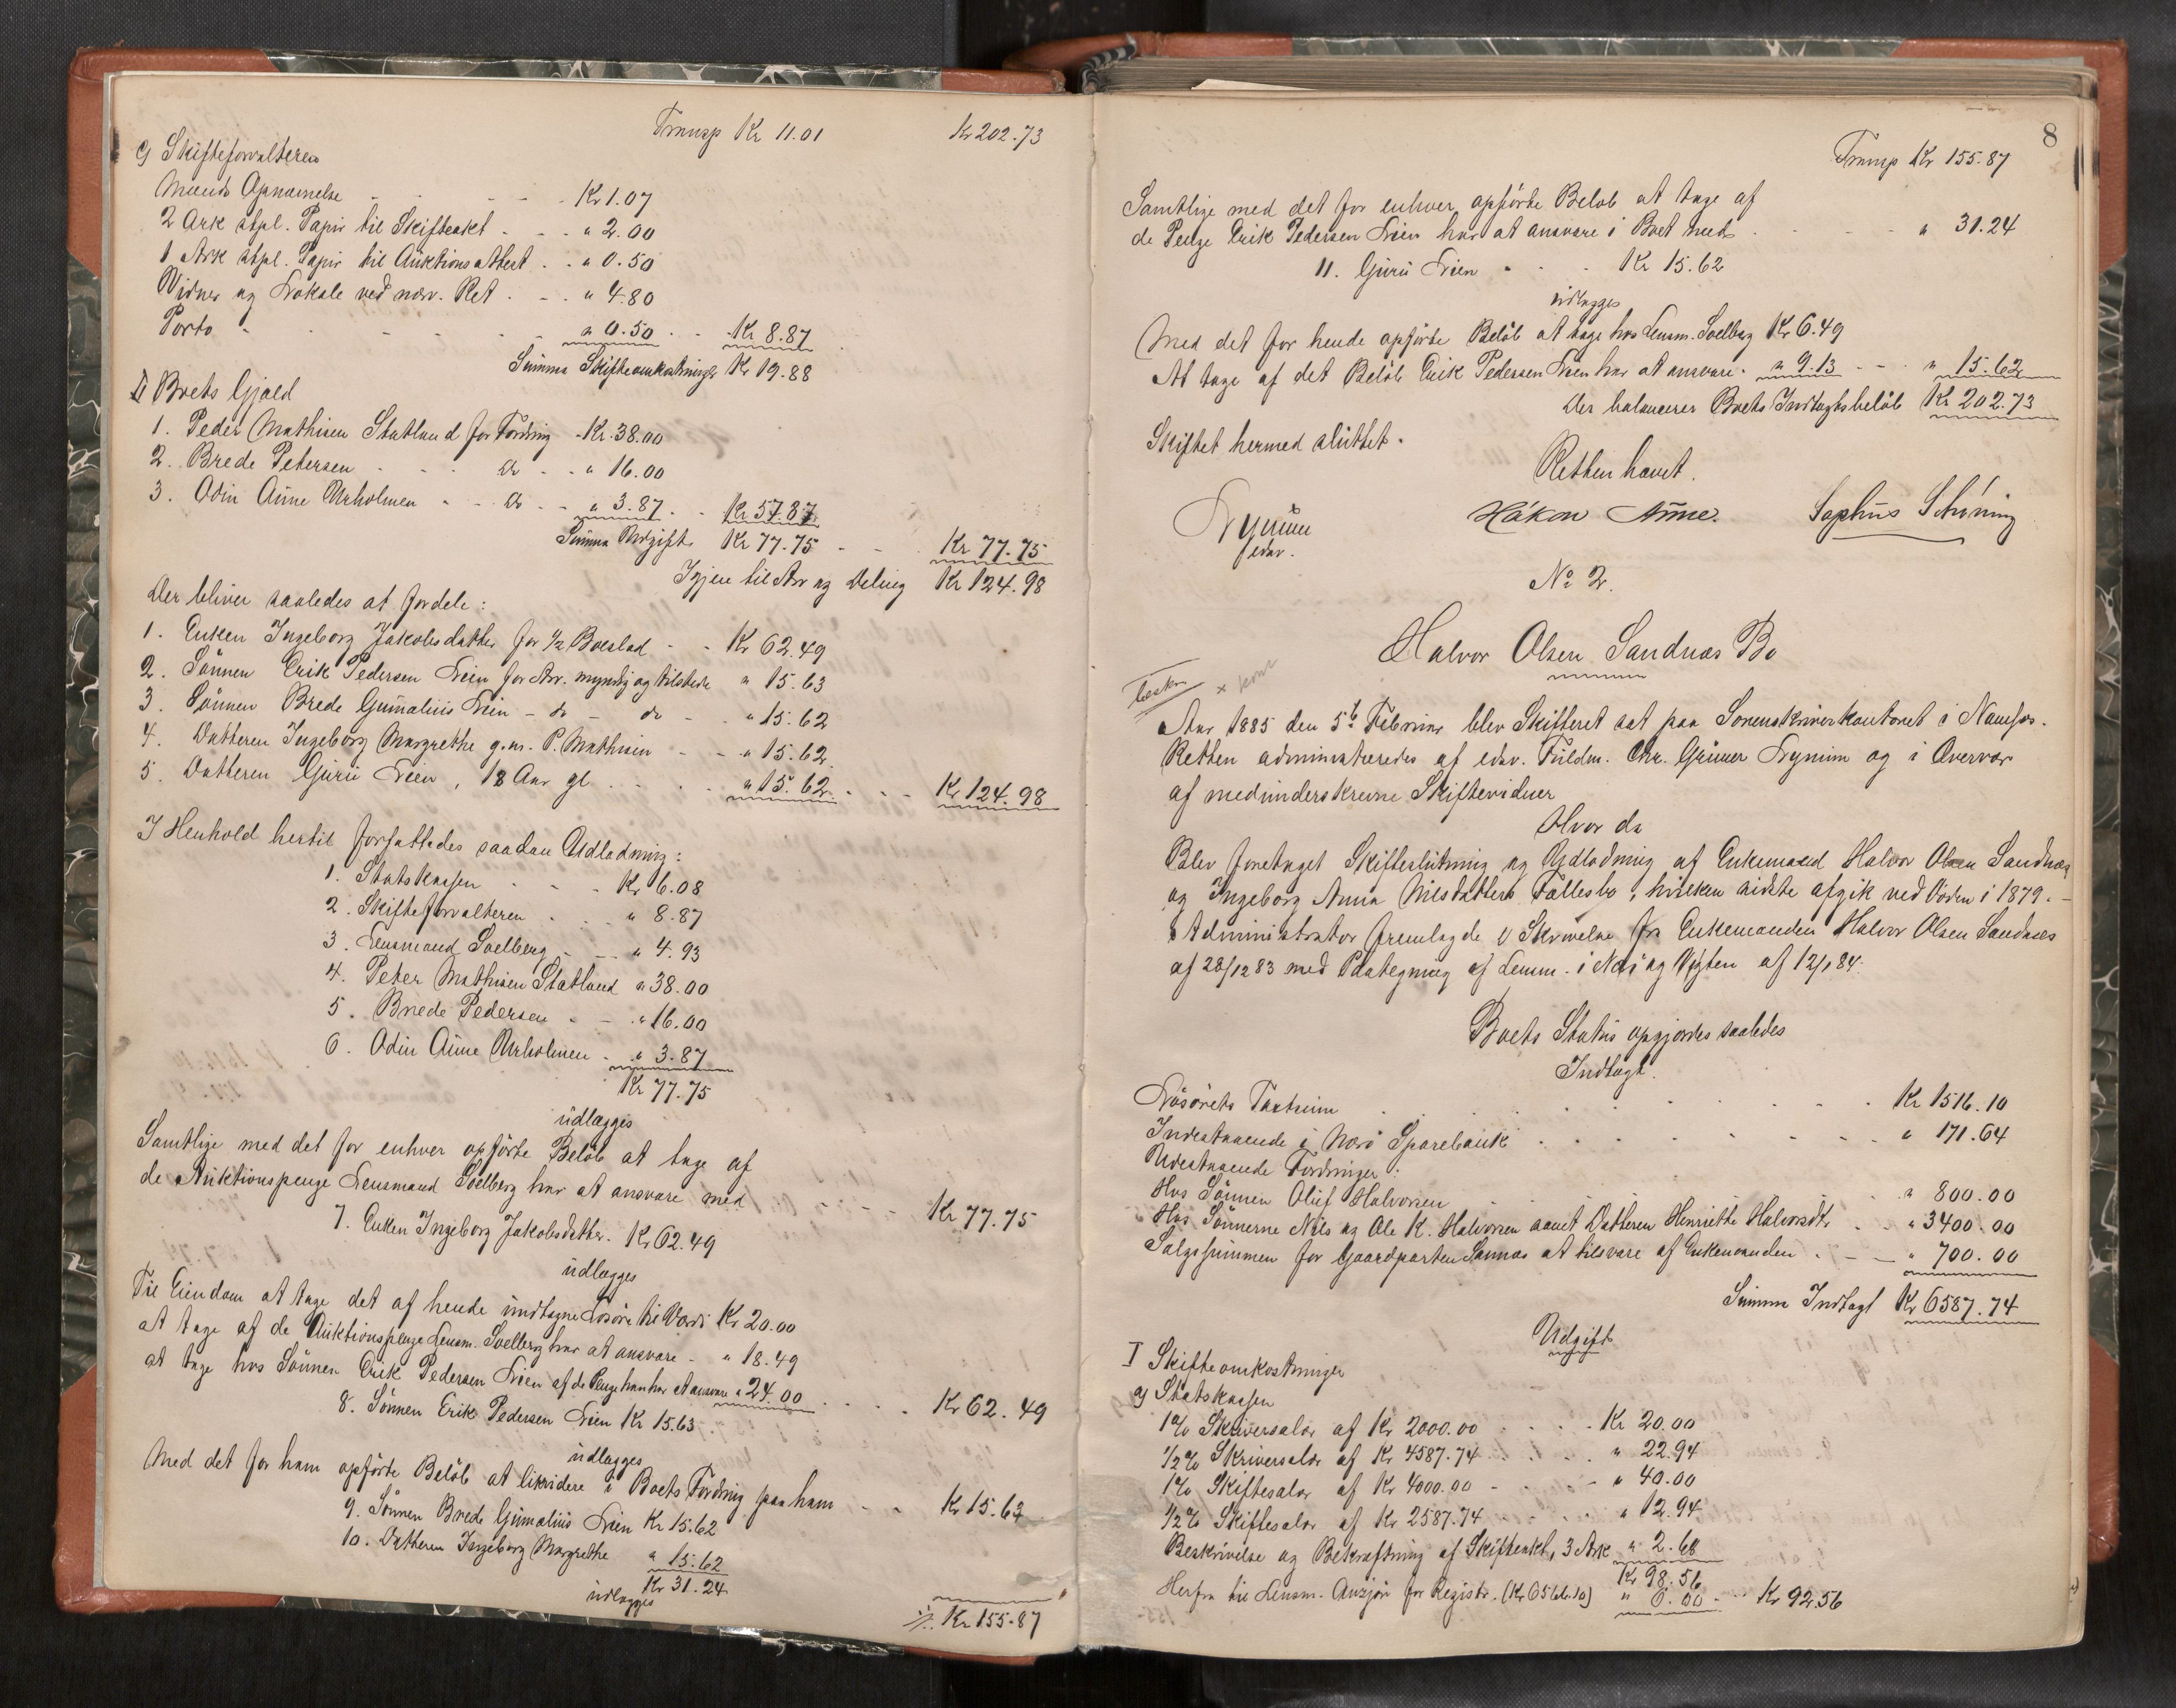 Transp Kr 11.01 Kr 202.73
c) Skifteforvalteren
Mænds Opnævnelse - - - Kr 1.07
2 Ark stpl. Papir til Skifteakt - - - " 2.00
1 Ark stpl. Papir til Auktionsattest - - " 0.50
Vidner og Lokale ved nærv. Ret - - " 4.80
Porto - - - - - " 0.50 - - Kr 8.87
Summa Skifteomkostninger Kr 19.88
II Boets Gjæld
1. Peder Mathisen Statland for Fordring - Kr. 38.00
2. Brede Petersen - - - do - - " 16.00
3. Odin Aune Urholmen - - do - - " 3.87 - - Kr 57.87
Summa Udgift Kr 77.75 - - Kr 77.75
Igjen til Arv og Deling Kr 124.98
Der bliver saaledes at fordele:
1. Enken Ingeborg Jakobsdatter for 1/2 Boeslod - - Kr 62.49
2. Sønnen Erik Pedersen Lien for Arv. myndig og tilstede " 15.63
3. Sønnen Brede Gumalius Lien - do - do - - " 15.62
4. Datteren Ingeborg Margrethe g.m. P. Mathisen - - " 15.62
5. Datteren Guru Lien, 18 Aar gl - - - " 15.62 - - - Kr 124.98
I Henhold hertil forfattedes saadan Udlodning:
1. Statskassen - - - Kr 6.08
2. Skifteforvalteren - - " 8.87
3. Lensmand Soelberg - - " 4.93
4. Peter Mathisen Statland " 38.00
5. Brede Pedersen - - " 16.00
6. Odin Aune Urholmen - " 3.87
Kr 77.75
udlægges
Samtlige med det for enhver opførte Beløb at tage af
de Auktionspenge Lensmand Soelberg har at ansvare med - - - - Kr 77.75
7. Enken Ingeborg Jakobsdatter. Kr 62.49
udlægges
Til Eiendom at tage det af hende undtagne Løsøre til Værdi Kr 20.00
at tage af de Auktionspenge Lensm. Soelberg har at ansvare - " 18.49
at tage hos Sønnen Erik Pedersen Lien af de Penge han har at ansvare " 24.00 - - - - Kr 62.49
8. Sønnen Erik Pedersen Lien Kr 15.63
udlægges
Med det for ham opførte Beløb at likvidere i Boets Fordring paa ham - - Kr 15.63
9. Sønnen Brede Gumalius Lien Kr 15.62
10. Datteren Ingeborg Margrethe " 15.62
Kr 31.24
udlægges
Kr 155.87
8
Transp Kr 155.87
Samtlige med det for enhver opførte Beløb at tage af
de Penge Erik Pedersen Lien har at ansvare i Boet med - - - - " 31.24
11. Guru Lien - - - Kr 15.62
udlægges
Med det for hende opførte Beløb at tage hos Lensm. Soelberg Kr 6.49
At tage af det Beløb Erik Pedersen Lien har at ansvare - " 9.13 - - - " 15.62
Der balancerer Boets Indtægtsbeløb Kr 202.73
Skiftet hermed sluttet.
Retten hævet.
Lynum Håkon Aune. Sophus Schøning
edsv.
No 2.
Halvor Olsen Sandnæs Bo
x
Aar 1885 den 5te Februar blev Skifteret sat paa Sorenskriverkontoret i Namsos.
Retten administreredes af edsv. Fuldm. Chr. Grüner Lynum og i Overvær
af medunderskrevne Skiftevidner
Hvor da
Blev foretaget Skifteslutning og Udlodning af Enkemand Halvor Olsen Sandnæs
og Ingeborg Anna Nilsdatters Fællesbo, hvilken sidste afgik ved Døden i 1879. -
Administrator fremlagde 1) Skrivelse fra Enkemanden Halvor Olsen Sandnæs
af 28/12 83 med Paategning af Lensm. i Nærø og Vigten af 12/1 84.
Boets Status opgjordes saaledes
Indtægt.
Løsørets Taxtsum - - - - - Kr 1516.10
Indestaaende i Nærø Sparebank - - - - - " 171.64
Udestaaende Fordringer:
Hos Sønnen Oluf Halvorsen - - - - - " 800.00
Hos Sønnerne Nils og Ole K. Halvorsen samt Datteren Henriette Halvorsdtr - - " 3400.00
Salgssummen for Gaardparten Sannæs at tilsvare af Enkemanden - - - " 700.00
Summa Indtægt Kr 6587.74
Udgift
I Skifteomkostninger
a) Statskassen
1% Skriversalær af Kr 2000.00 - - - Kr 20.00
1/2% Skriversalær af Kr 4587.74 - - - " 22.94
1% Skiftesalær af Kr 4000.00 - - - " 40.00
1/2% Skiftesalær af Kr 2587.74 - - - " 12.94
Beskrivelse og Bekræftning af Skifteakt, 3 Ark " 2.68
Kr 98.56
Herfra til Lensm. Auzjøn for Registr. " 6.00 - - Kr 92.56